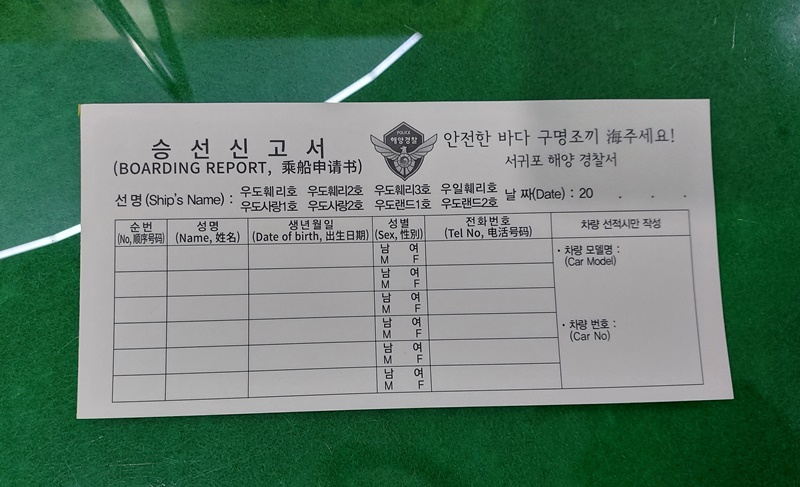 승 선 신 고 서
(BOARDING REPORT, 乘船申请书)
POLICE
해양경찰
안전한 바다 구명조끼 海주세요!
서귀포 해양 경찰서
선 명 (Ship's Name) : 우도훼리호 우도훼리2호 우도훼리3호 우일훼리호
우도사랑1호 우도사랑2호 우도랜드1호 우도랜드2호
날 짜(Date) : 20 . . .
순 번 성 명 생 년 월 일 성 별 전 화 번 호 차량 선적시만 작성
(No, 顺序号码) (Name, 姓名) (Date of birth, 出生日期) (Sex, 性別) (Tel No, 电话号码)
남 여
M F
남 여
M F
남 여
M F
남 여
M F
남 여
M F
남 여
M F
· 차량 모델명 :
(Car Model)
· 차량 번호 :
(Car No)